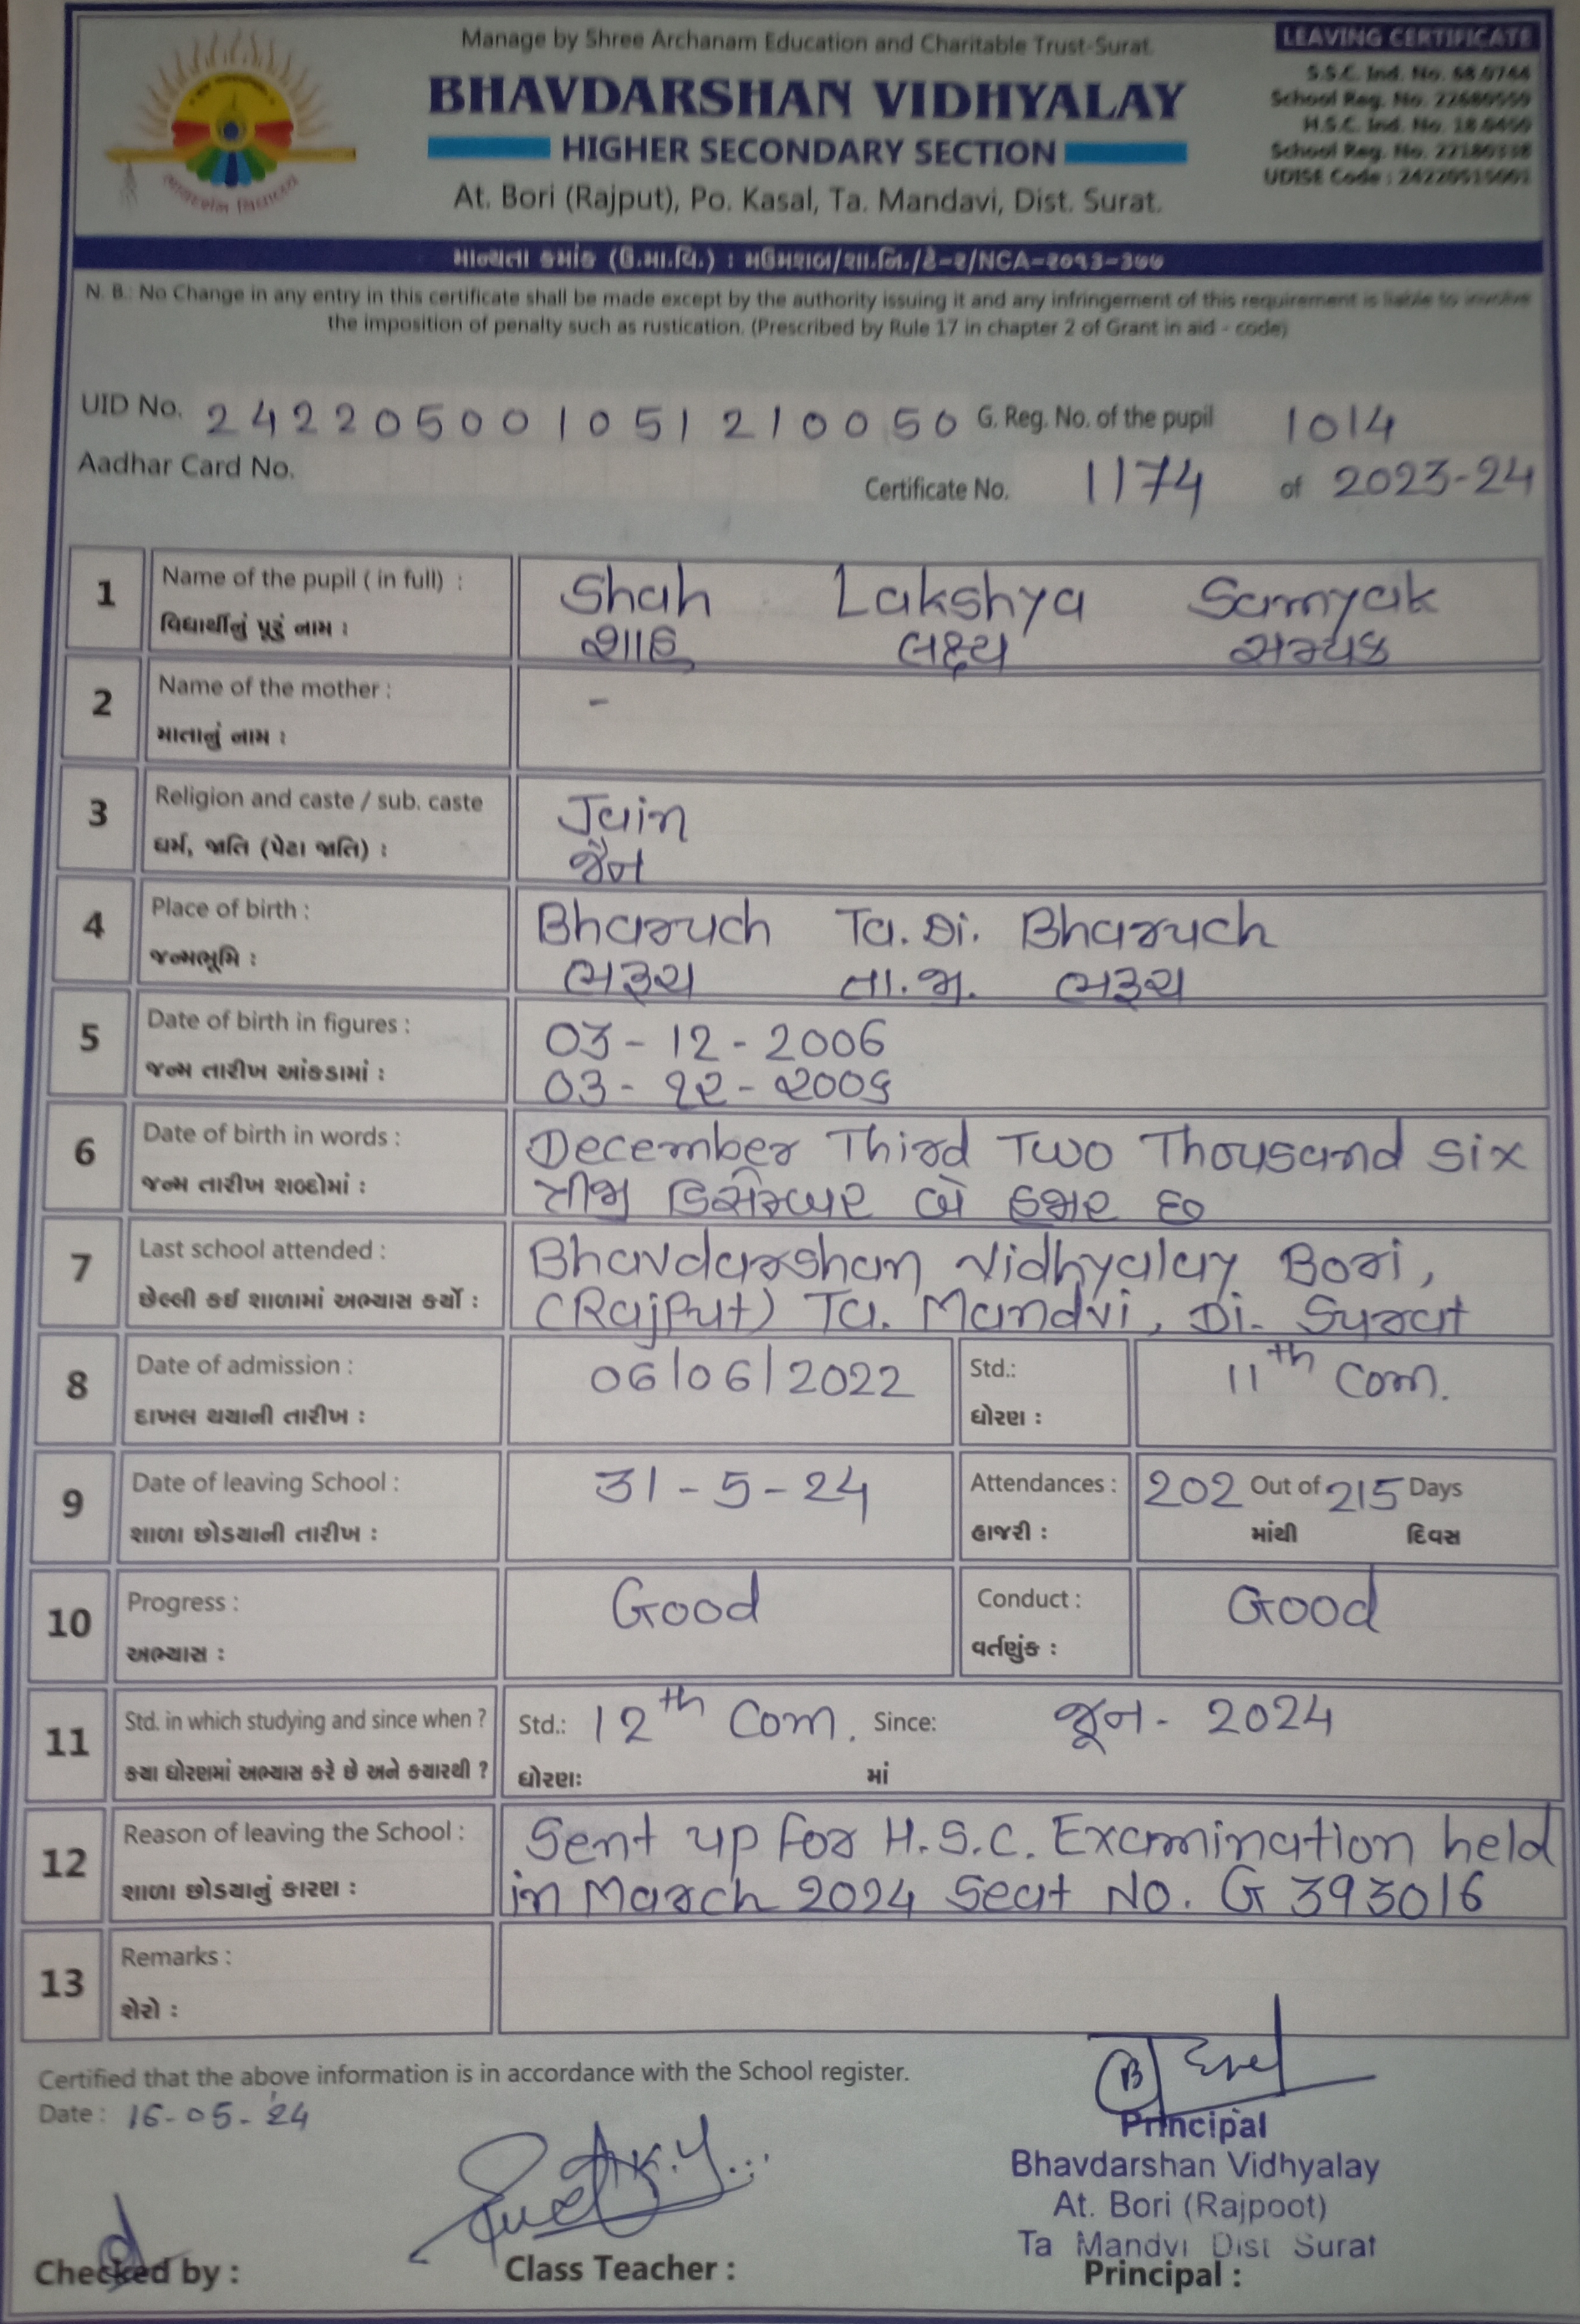 Manage by Shree Archanam Education and Charitable Trust-Surat.
LEAVING CERTIFICATE
BHAVDARSHAN VIDHYALAY
HIGHER SECONDARY SECTION
At. Bori (Rajput), Po. Kasal, Ta. Mandavi, Dist. Surat.
S.S.C. Ind. No.
School Reg. No.
H.S.C. Ind. No.
School Reg. No.
UDISE Code :
માન્યતા ક્રમાંક (ઉ.મા.વિ.) : મઉમશબ/શા.નિ./હે-૨/NCA-૨૦૧૩-૩૭૭
N. B.: No Change in any entry in this certificate shall be made except by the authority issuing it and any infringement of this requirement is liable to involve
the imposition of penalty such as rustication. (Prescribed by Rule 17 in chapter 2 of Grant in aid - code)
UID No. 242205001051210050 G. Reg. No. of the pupil 1014
Aadhar Card No.
Certificate No. 1174 of 2023-24
1 Name of the pupil ( in full) : Shah Lakshya Samyak
વિદ્યાર્થીનું પૂરું નામ : શાહ લક્ષ્ય સમ્યક
2 Name of the mother : -
માતાનું નામ :
3 Religion and caste / sub. caste Jain
ધર્મ, જાતિ (પેટા જાતિ) : જૈન
4 Place of birth : Bharuch Ta. Di. Bharuch
જન્મભૂમિ : ભરૂચ તા.જી. ભરૂચ
5 Date of birth in figures : 03-12-2006
જન્મ તારીખ આંકડામાં : ૦૩-૧૨-૨૦૦૬
6 Date of birth in words : December Third Two Thousand six
જન્મ તારીખ શબ્દોમાં : ત્રીજી ડિસેમ્બર બે હજાર છ
7 Last school attended : Bhavdarshan Vidhyalay Bori,
છેલ્લી કઈ શાળામાં અભ્યાસ કર્યો : (Rajput) Ta. Mandvi, Di. Surat
8 Date of admission : 06/06/2022 Std.: 11th Com.
દાખલ થયાની તારીખ : ધોરણ :
9 Date of leaving School : 31-5-24 Attendances : 202 Out of 215 Days
શાળા છોડયાની તારીખ : હાજરી : માંથી દિવસ
10 Progress : Good Conduct : Good
અભ્યાસ : વર્તણુંક :
11 Std. in which studying and since when ? Std.: 12th Com. Since: જૂન- 2024
કયા ધોરણમાં અભ્યાસ કરે છે અને કયારથી ? ધોરણ: માં
12 Reason of leaving the School : Sent up for H.S.C. Examination held
શાળા છોડયાનું કારણ : in March 2024 Seat No. G 393016
13 Remarks :
શેરો :
Certified that the above information is in accordance with the School register.
Date : 16-05-24
Principal
Bhavdarshan Vidhyalay
At. Bori (Rajpoot)
Ta Mandvi Dist Surat
Checked by : Class Teacher : Principal :